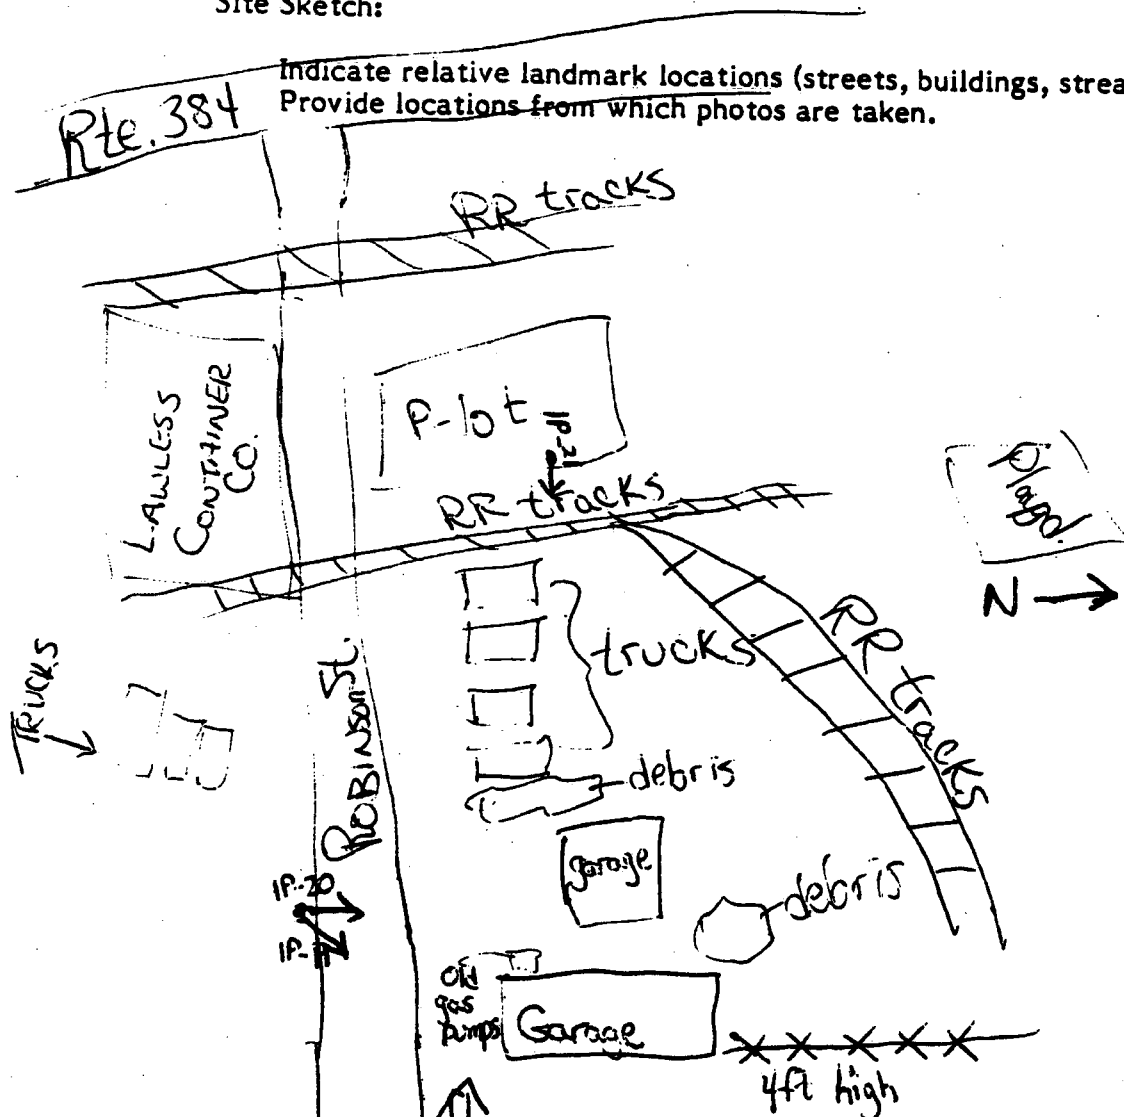 Site Sketch:
Indicate relative landmark locations (streets, buildings, strea
Provide locations from which photos are taken.
Rte. 384
RR tracks
LAWLESS
CONTAINER
CO.
P-lot
IP-21
RR tracks
Playgd.
N
trucks
RR tracks
TRUCKS
ROBINSON St.
debris
garage
IP-20
debris
Old
gas
pumps
Garage
4ft high